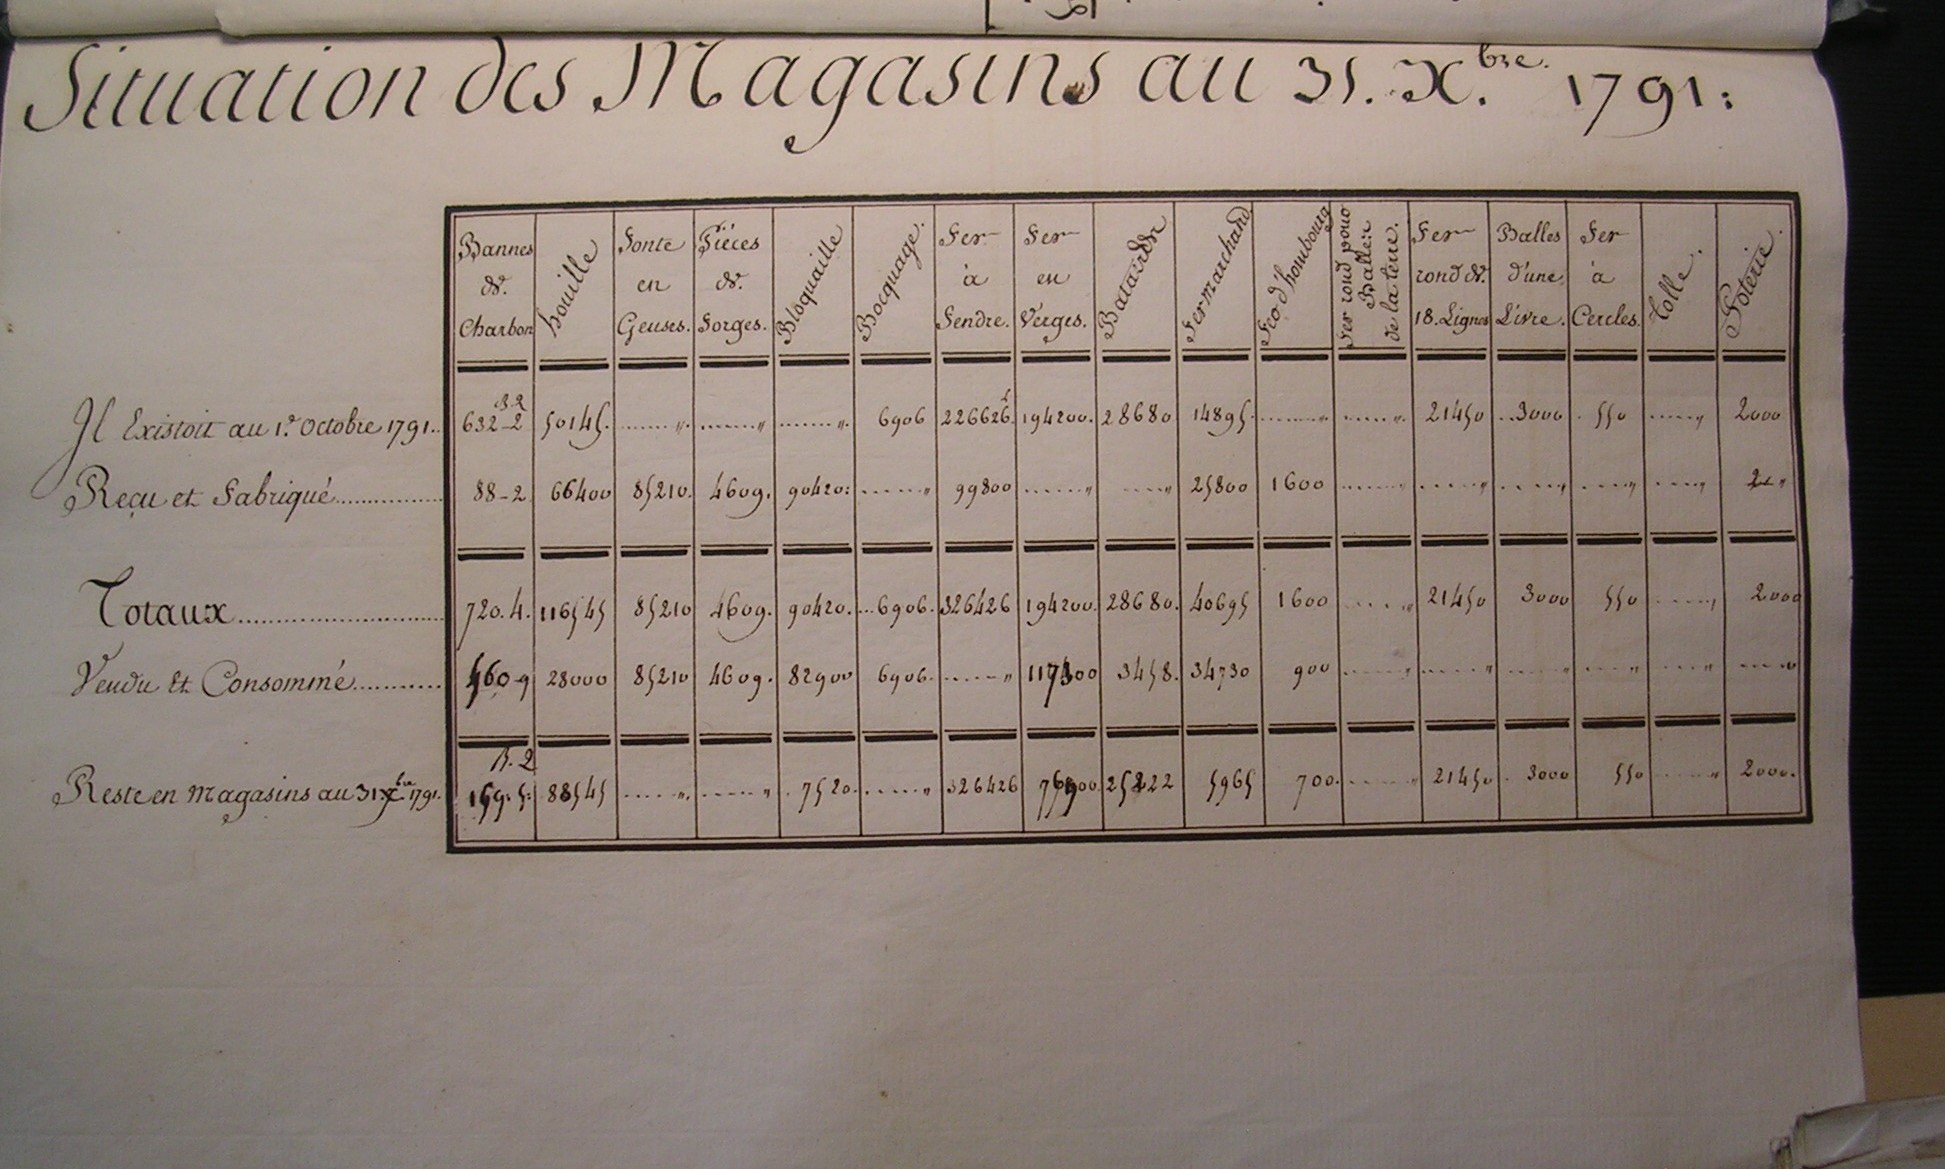 Situation des Magasins au 31. Xbre. 1791:
Bannes de Charbon | houille | Fonte en Geuses. | Pièces de Forges. | Bloquaille | Bocquage. | Fer à Fendre. | Fer en Verges. | Batairde | Fer marchand | Fer d'hombourg | Fer rond pour Balle: de la terre. | Fer rond de 18. Lignes | Balles d'une Livre. | Fer à Cercles. | Tolle. | Poterie.
Il Existoit au 1er Octobre 1791.. | 632-2 | 50145. | ........". | ........" | ........". | 6906 | 226626. | 194200. | 28680 | 14895. | ........" | ......" | 21450 | 3000 | 550 | ......" | 2000
Reçu et Fabriqué............... | 88-2. | 66400 | 85210. | 4609. | 90420: | ......." | 99800 | ......." | ....." | 25800 | 1600 | ......." | ....." | ....." | ....." | ....." | "
Totaux........................... | 720.4. | 116545 | 85210 | 4609. | 90420. | ...6906. | 326426 | 194200. | 28680. | 40695 | 1600 | ......" | 21450 | 3000 | 550 | ......" | 2000
Vendu et Consommé........... | 560-9 | 28000 | 85210 | 4609. | 82900 | 6906. | ......." | 117300 | 3458. | 34730 | 900 | ......." | ......." | ......" | ......" | ......" | ....."
B. 2
Reste en Magasins au 31 Xbre 1791. | 159.5. | 88545 | .......". | ......." | 7520. | ......." | 326426 | 76900. | 25222 | 5965 | 700. | ......." | 21450 | 3000 | 550 | ......." | 2000.